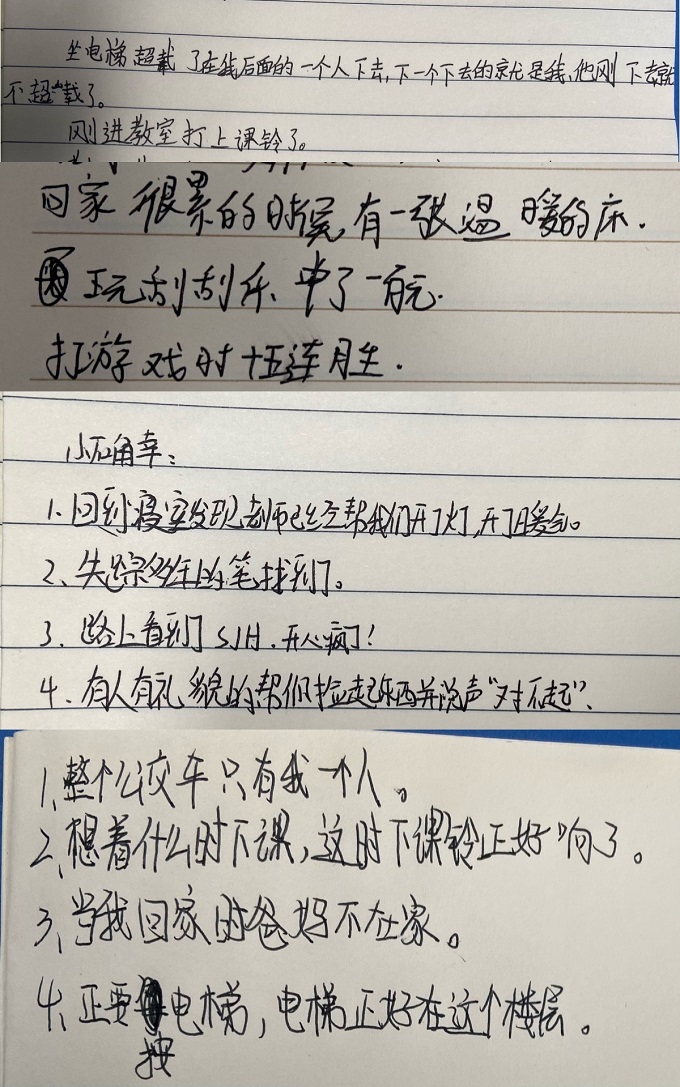 坐电梯超载了在我后面的一个人下去,下一个下去的就是我,他刚下去就
不超载了。
刚进教室打上课铃了。
回家很累的时候有一张温暖的床.
玩刮刮乐、中了一百元.
打游戏时十五连胜.
小确幸:
1.回到寝室发现老师已经帮我们开了灯,开了暖气。
2、失踪多年的笔找到了。
3、路上看到了SJH.开心疯了!
4、有人有礼貌的帮你捡起东西并说声“对不起”、
1、整个公交车只有我一个人。
2、想着什么时下课,这时下课铃正好响了。
3、当我回家时爸妈不在家。
4、正要按电梯,电梯正好在这个楼层。